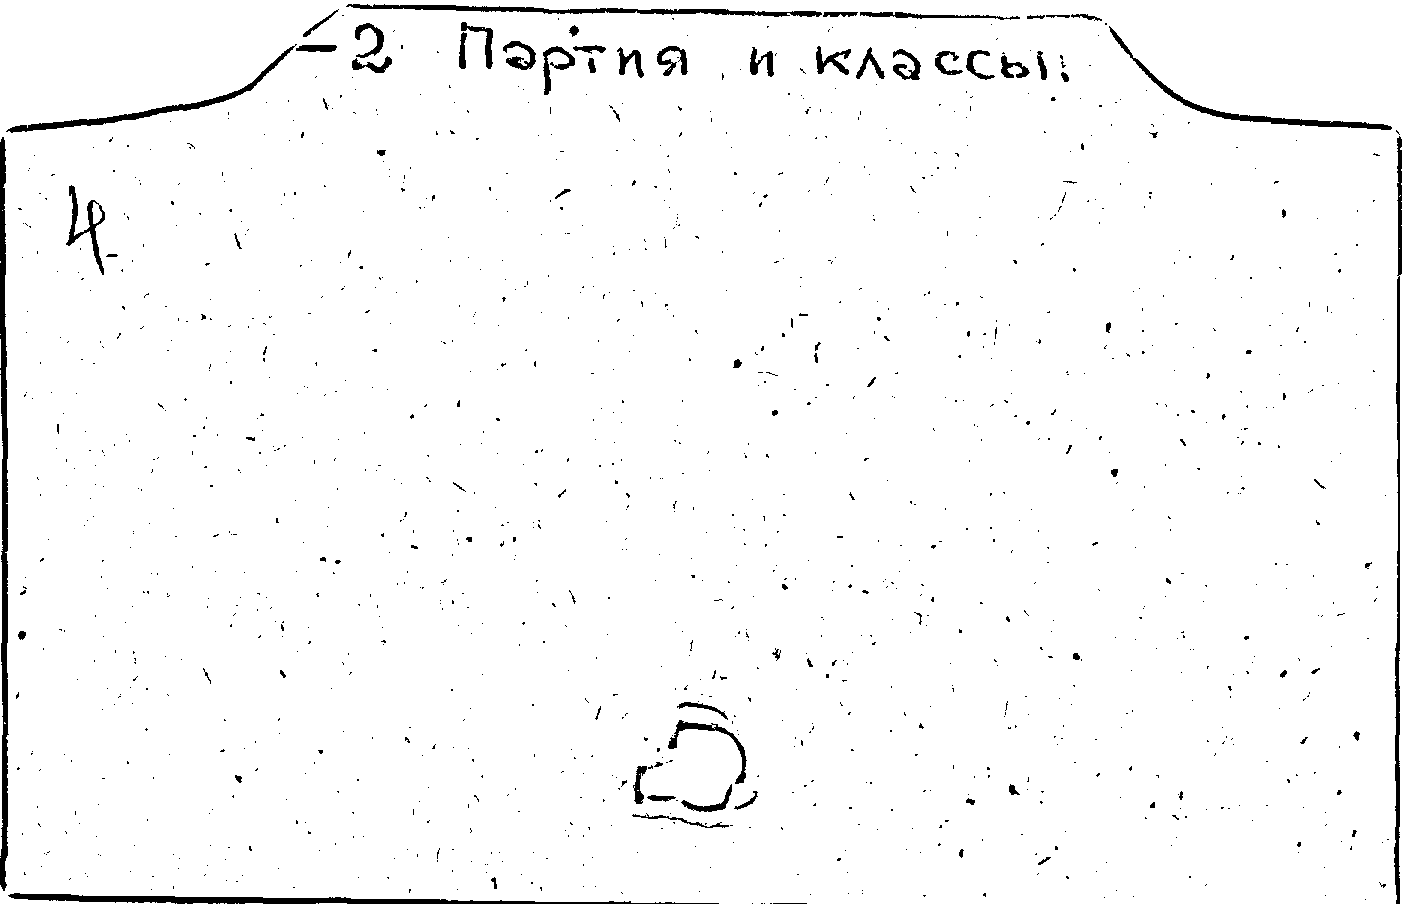 -2 Партия и классы.
4